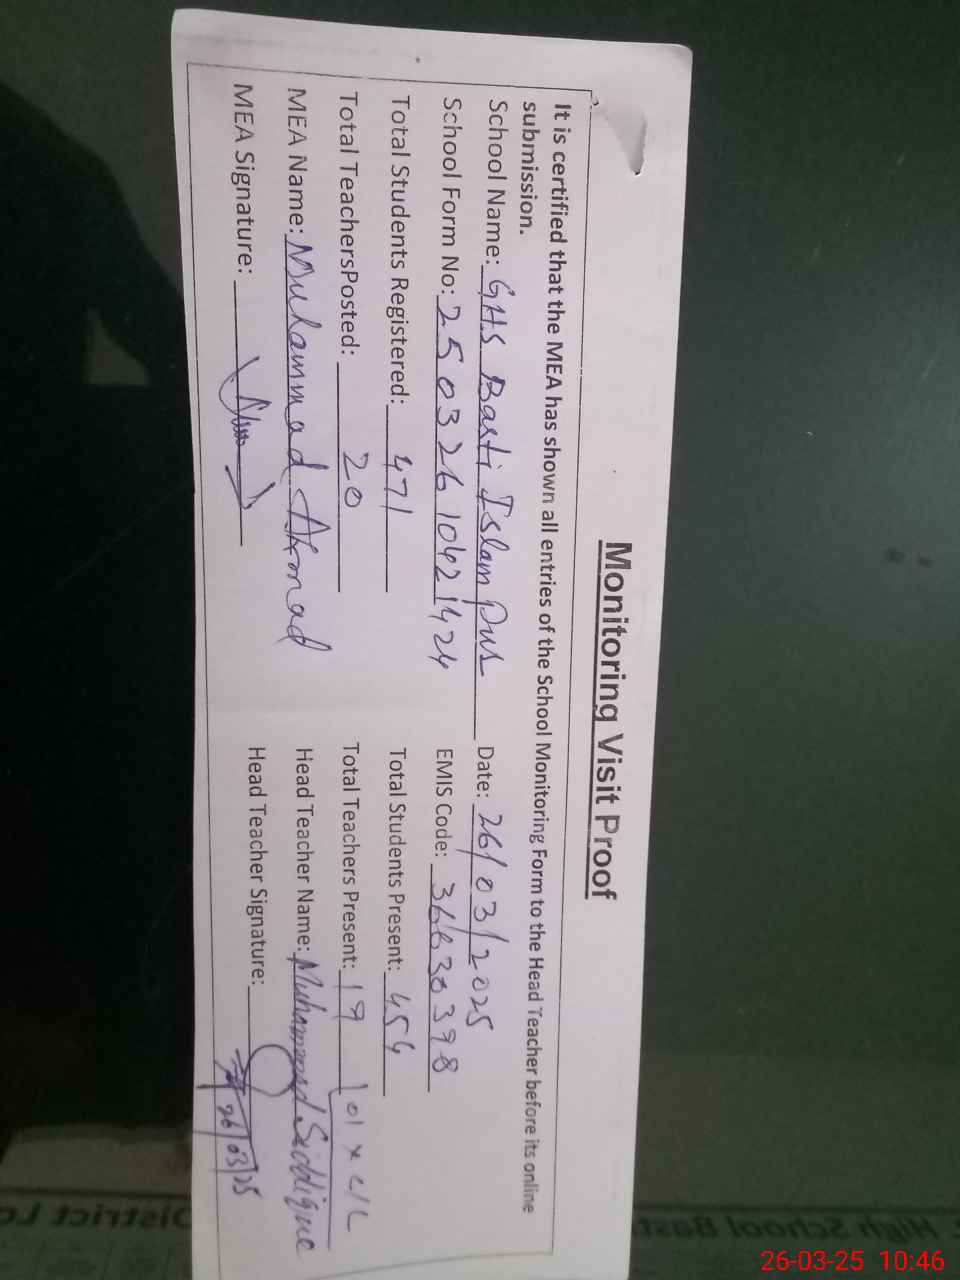 Monitoring Visit Proof
It is certified that the MEA has shown all entries of the School Monitoring Form to the Head Teacher before its online
submission.
School Name: GHS Basti Islam Pur Date: 26/03/2025
School Form No: 25032610421424 EMIS Code: 36630398
Total Students Registered: 471 Total Students Present: 454
Total TeachersPosted: 20 Total Teachers Present: 19 01 x C/L
MEA Name: Muhammad Ahmad Head Teacher Name: Muhammad Siddique
MEA Signature: Head Teacher Signature: 26/03/25
High School Bast
District Lo
26-03-25 10:46